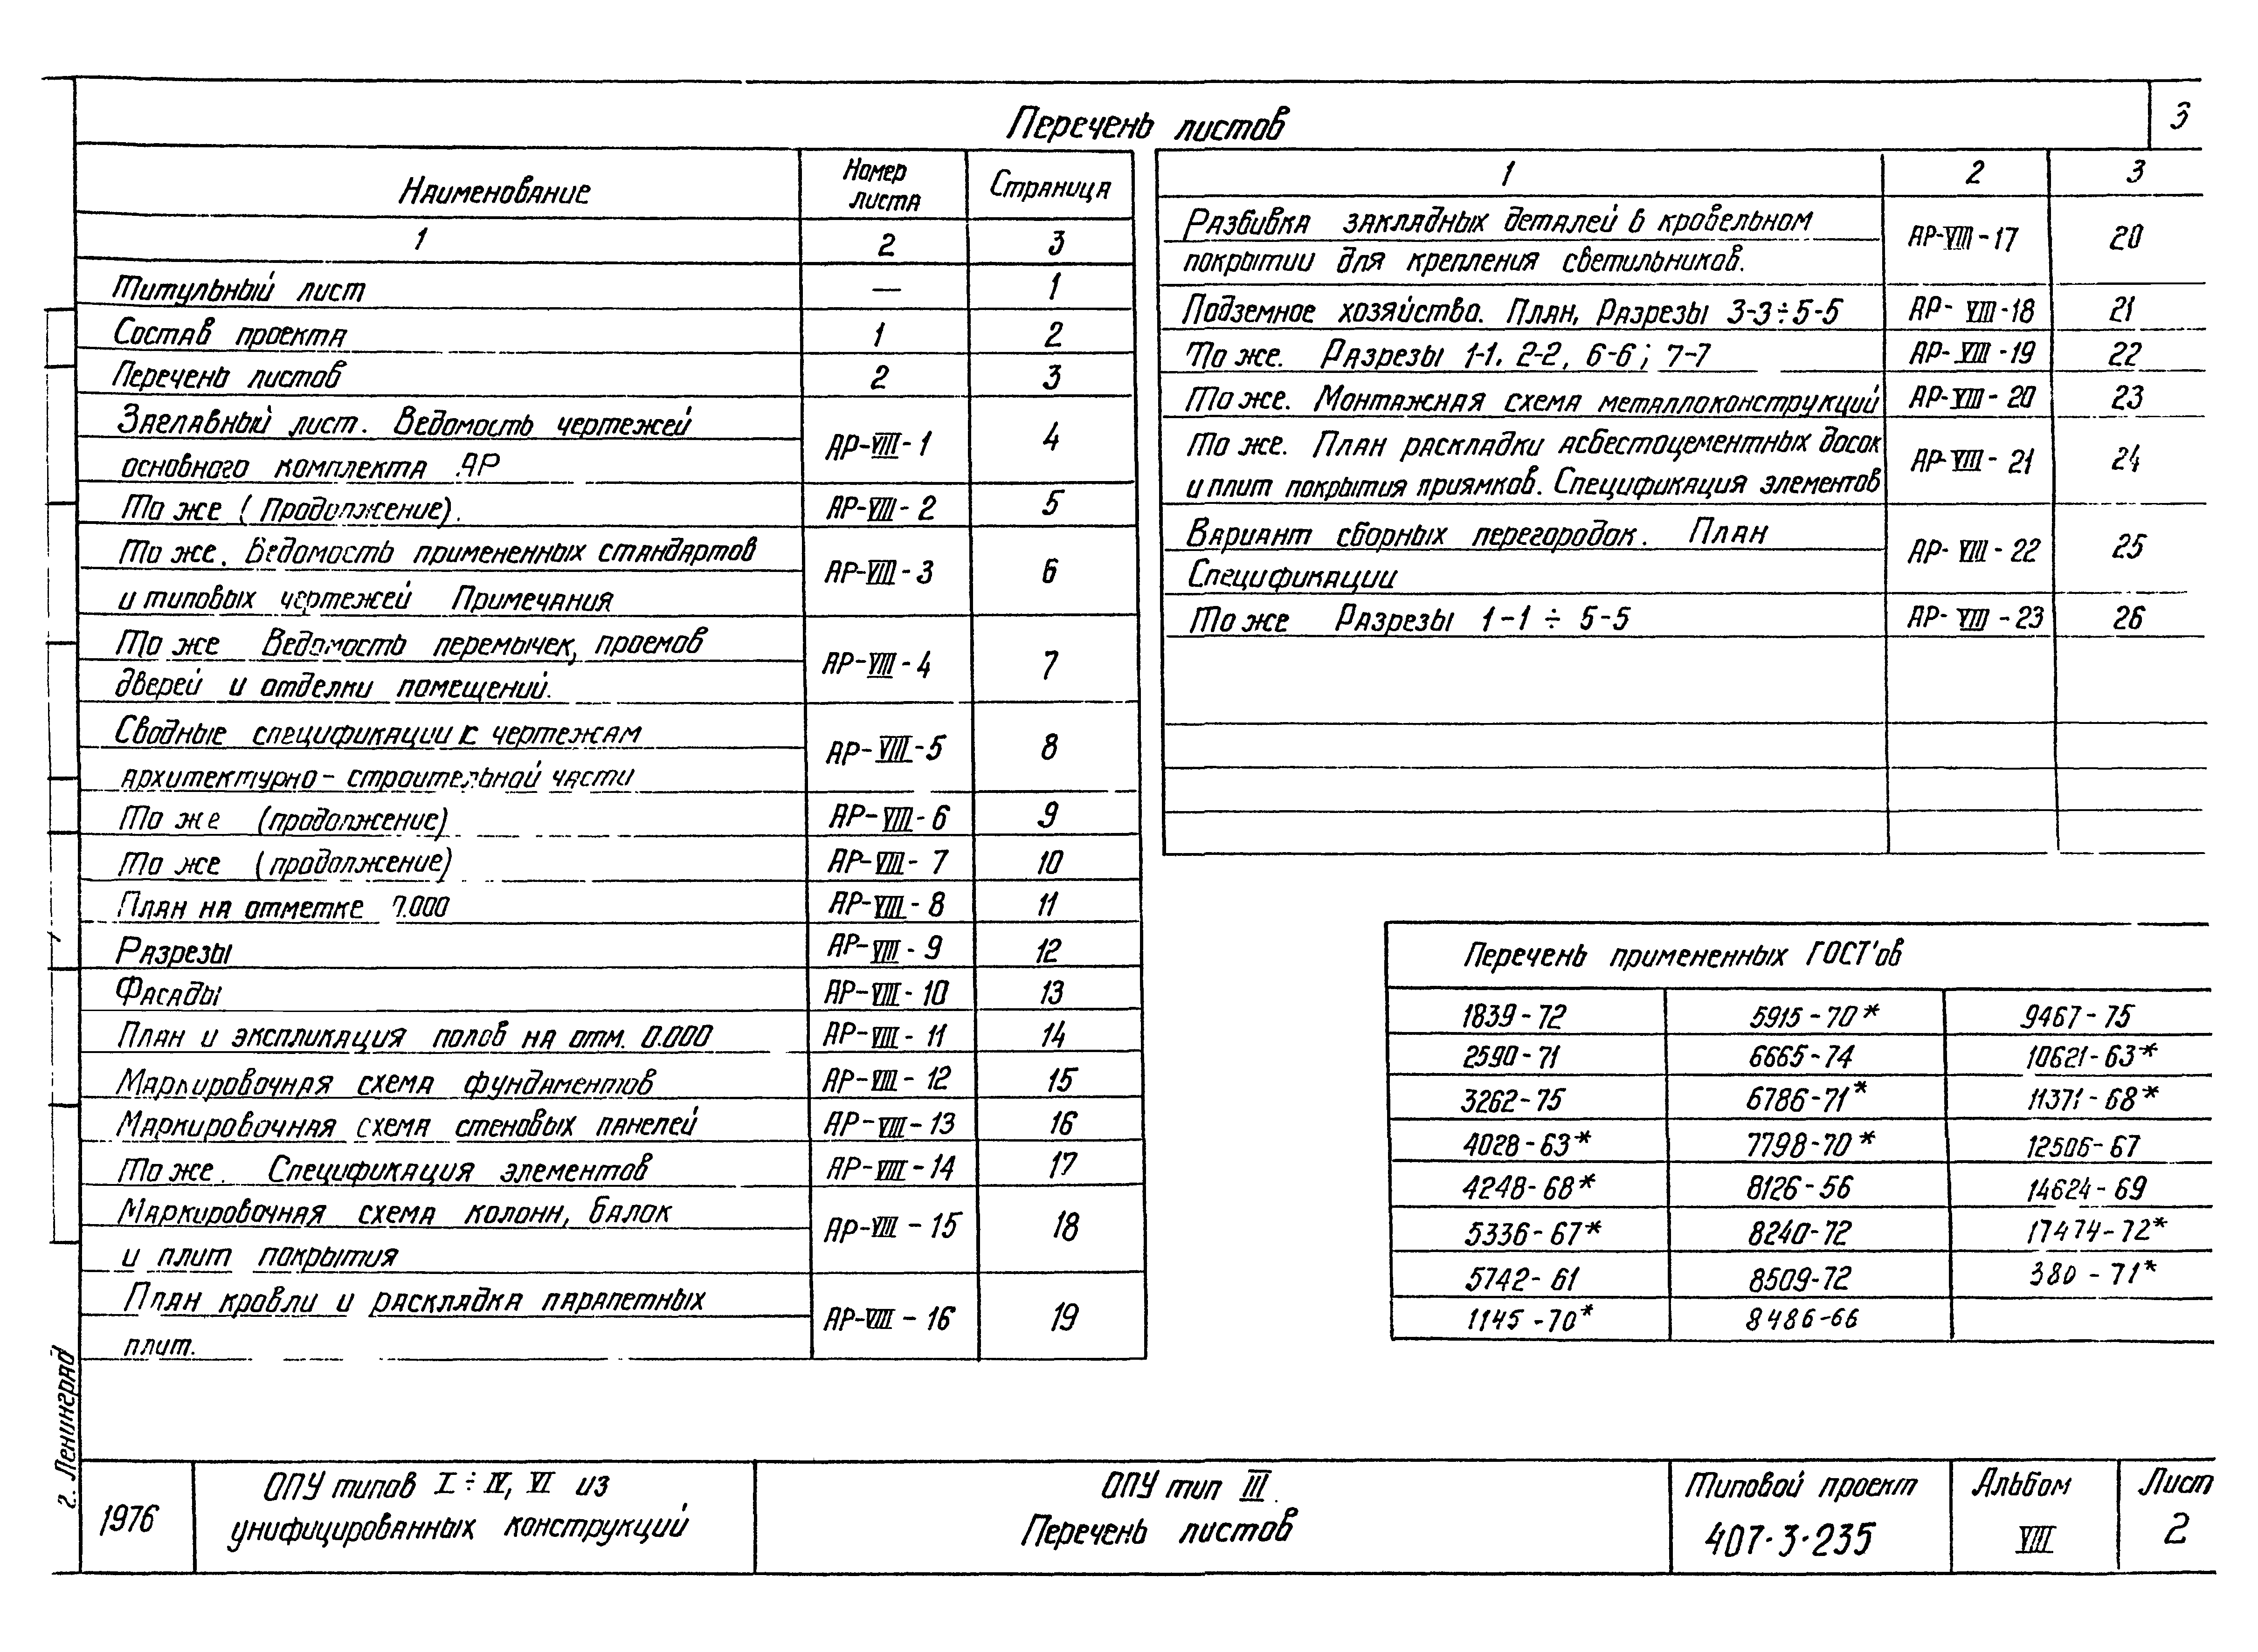 Перечень листов
3
Наименование Номер листа Страница
1 2 3
Титульный лист — 1
Состав проекта 1 2
Перечень листов 2 3
Заглавный лист. Ведомость чертежей
основного комплекта АР АР-VIII-1 4
То же (Продолжение). АР-VIII-2 5
То же. Ведомость примененных стандартов
и типовых чертежей Примечания АР-VIII-3 6
То же Ведомость перемычек, проемов
дверей и отделки помещений. АР-VIII-4 7
Сводные спецификации к чертежам
архитектурно-строительной части АР-VIII-5 8
То же (продолжение) АР-VIII-6 9
То же (продолжение) АР-VIII-7 10
План на отметке 0.000 АР-VIII-8 11
Разрезы АР-VIII-9 12
Фасады АР-VIII-10 13
План и экспликация полов на отм. 0.000 АР-VIII-11 14
Маркировочная схема фундаментов АР-VIII-12 15
Маркировочная схема стеновых панелей АР-VIII-13 16
То же. Спецификация элементов АР-VIII-14 17
Маркировочная схема колонн, балок
и плит покрытия АР-VIII-15 18
План кровли и раскладка парапетных
плит. АР-VIII-16 19
1 2 3
Разбивка закладных деталей в кровельном
покрытии для крепления светильников. АР-VIII-17 20
Подземное хозяйство. План, Разрезы 3-3÷5-5 АР-VIII-18 21
То же. Разрезы 1-1. 2-2, 6-6; 7-7 АР-VIII-19 22
То же. Монтажная схема металлоконструкций АР-VIII-20 23
То же. План раскладки асбестоцементных досок
и плит покрытия приямков. Спецификация элементов АР-VIII-21 24
Вариант сборных перегородок. План
Спецификации АР-VIII-22 25
То же Разрезы 1-1 ÷ 5-5 АР-VIII-23 26
Перечень примененных ГОСТ'ов
1839-72 5915-70* 9467-75
2590-71 6665-74 10621-63*
3262-75 6786-71* 11371-68*
4028-63* 7798-70* 12506-67
4248-68* 8126-56 14624-69
5336-67* 8240-72 17474-72*
5742-61 8509-72 380-71*
1145-70* 8486-66
г. Ленинград
1976
ОПУ типов I÷IV, VI из
унифицированных конструкций
ОПУ тип III.
Перечень листов
Типовой проект
407-3-235
Альбом
VIII
Лист
2